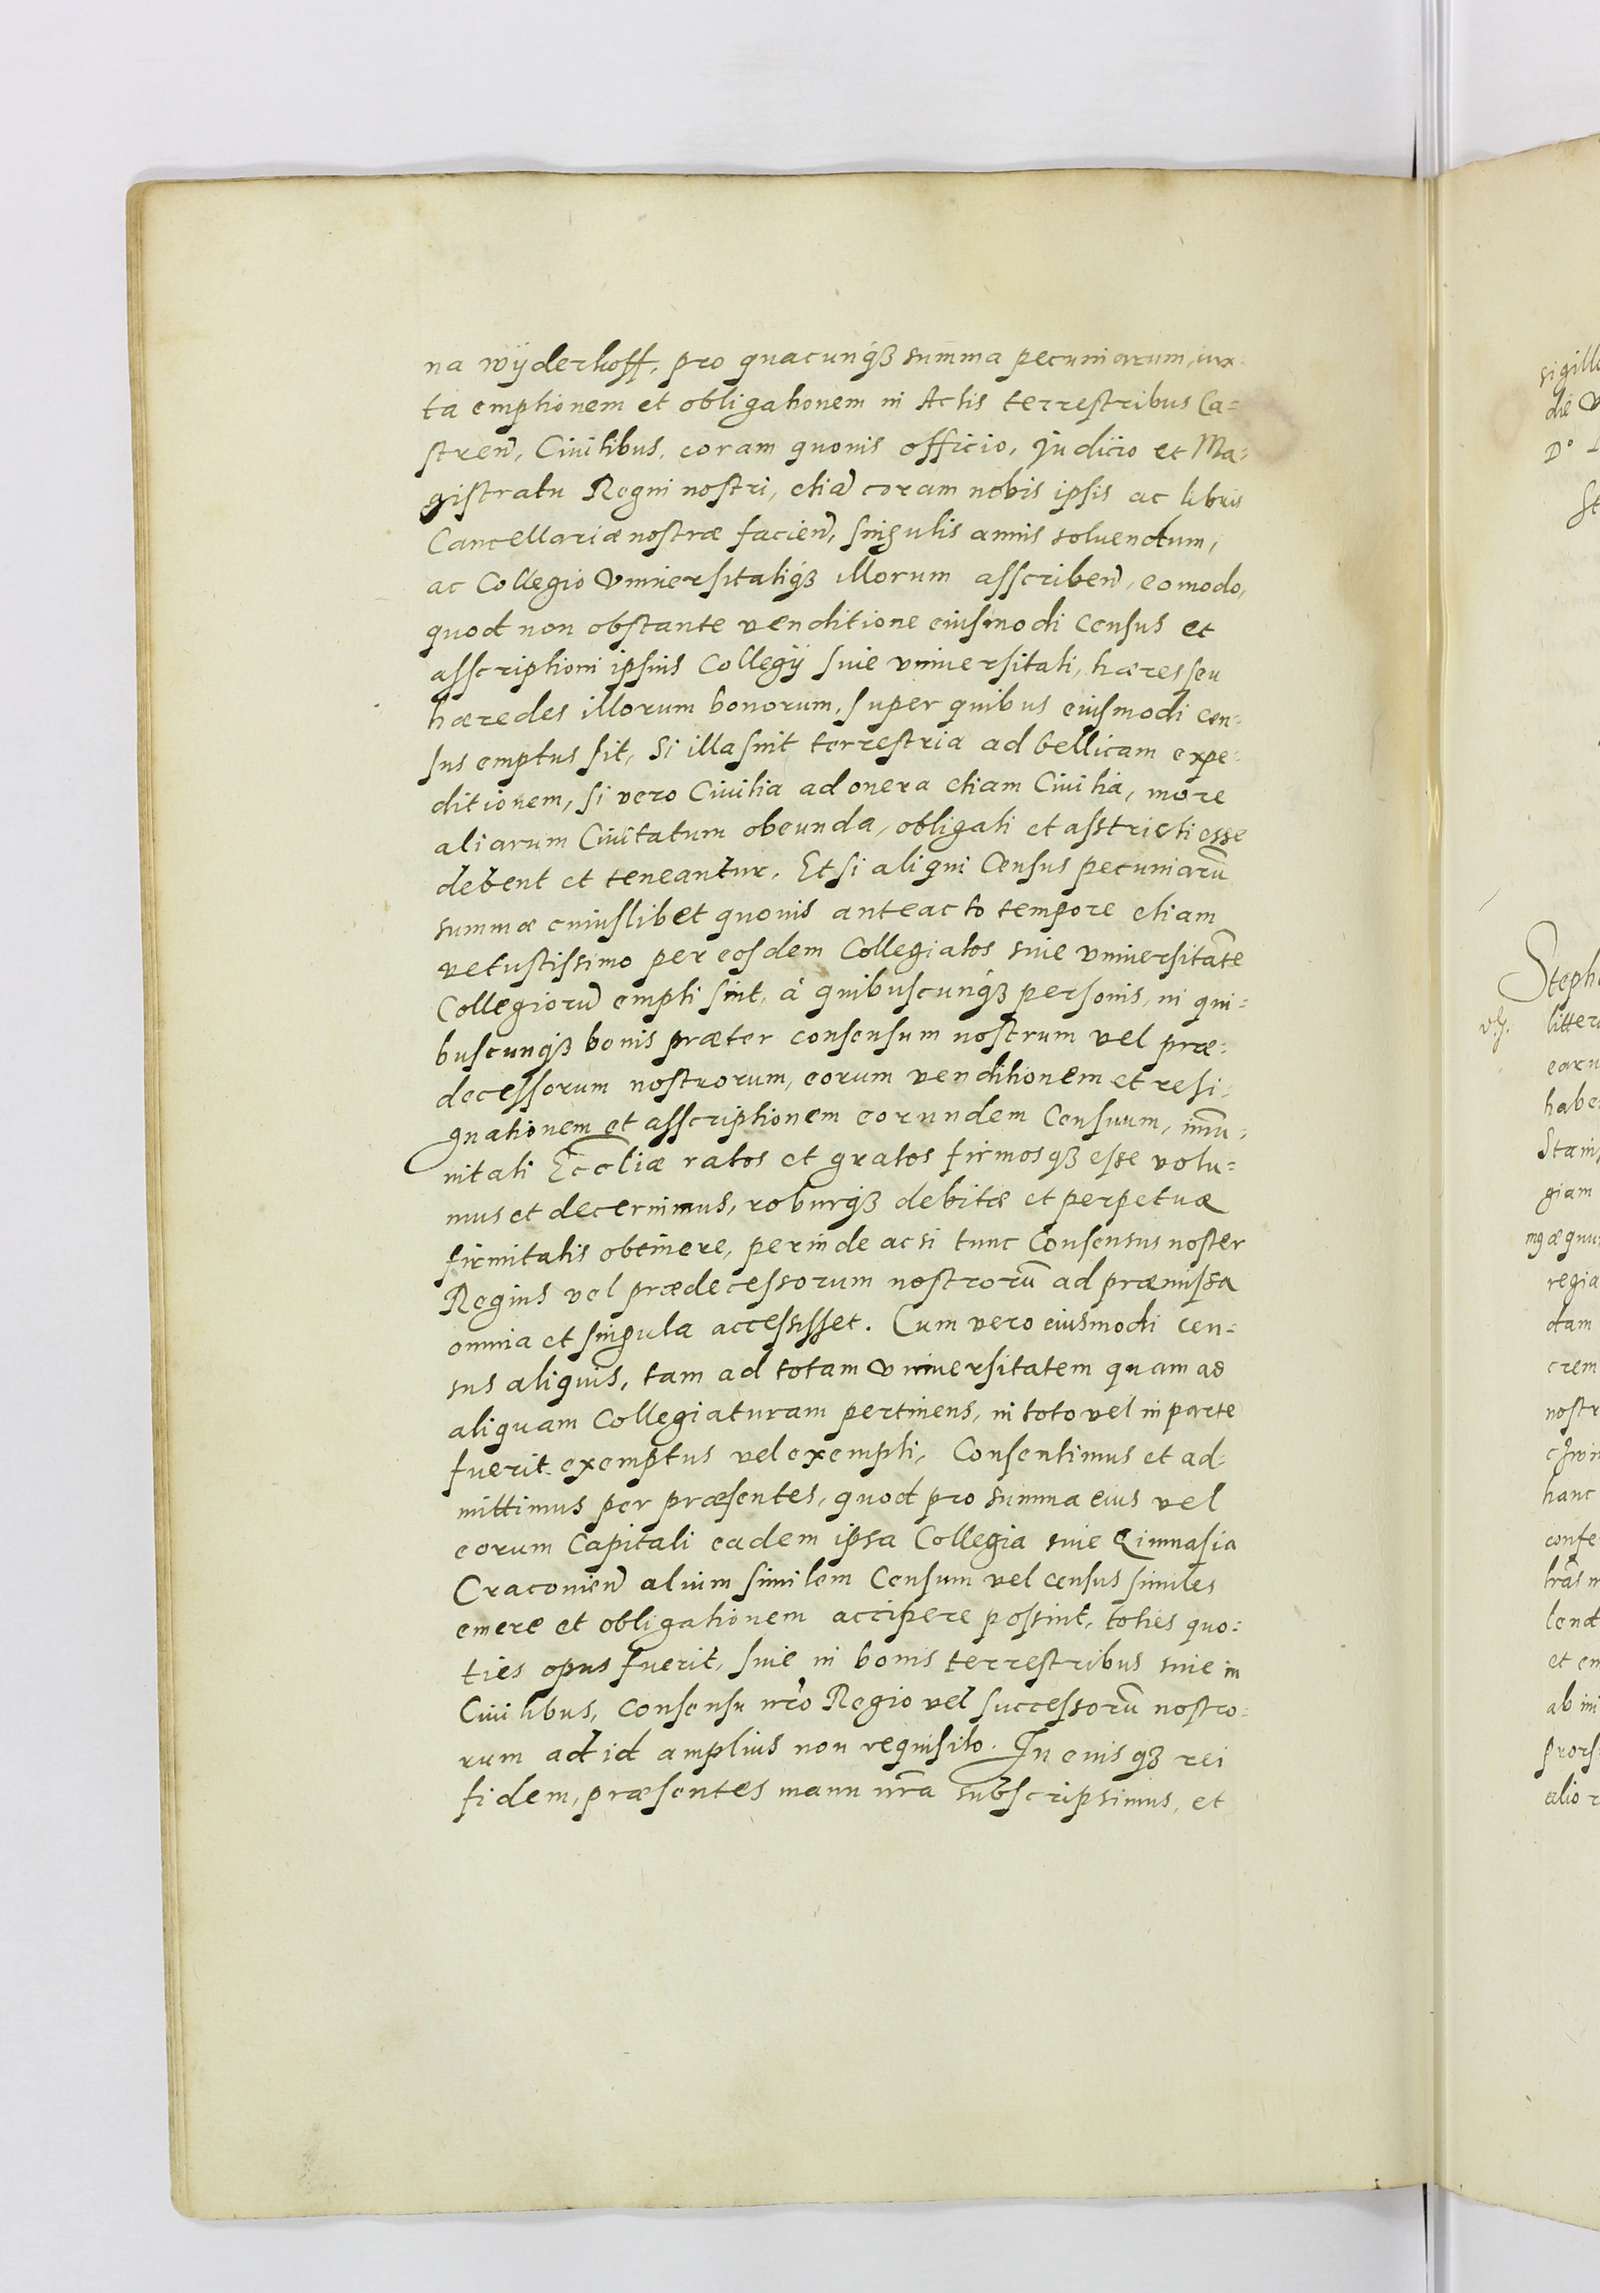 na wÿderkoff, pro quacunq́ꝫ summa pecuniarum, iux-
ta emptionem et obligationem in Actis terrestribus Ca=
stren̄, Ciuilibus, coram quouis officio, Judicio et Ma=
gistratu Regni nostri, etiā coram nobis ipsis ac libris
Cancellariæ nostræ facien̄, singulis annis soluendum,
ac Collegio Vniuersitatiq́ꝫ illorum asscriben̄, eo modo,
quod non obstante venditione eiusmodi Census et
asscriptioni ipsius Collegij siue vniuersitati, hæres seu
hæredes illorum bonorum, super quibus eiusmodi cen=
sus emptus sit, Si illa sint terrestria ad bellicam expe=
ditionem, si vero Ciuilia ad onera etiam Ciuilia, more
aliarum Ciuitatum obeunda, obligati et asstricti esse
debent et teneantur. Et si aliqui Census pecuniarū
summæ cuiuslibet quouis anteacto tempore etiam
vetustissimo per eosdem Collegiatos siue vniuersitatē
Collegiorū empti sint, à quibuscunq́ꝫ personis, in qui=
buscunq́ꝫ bonis præter consensum nostrum vel præ=
decessorum nostrorum, eorum venditionem et resi=
gnationem et asscriptionem eorundem Censuum, im̄u=
nitati Eccl̄iæ ratos et gratos firmosqꝫ esse volu=
mus et decernimus, roburq́ꝫ debitæ et perpetuæ
firmitatis obtinere, perinde ac si tunc Consensus noster
Regius vel prædecessorum nostrorū ad præmissa
omnia et singula accessisset. Cum vero eiusmodi cen=
sus aliquis, tam ad totam Vniuersitatem quam ad
aliquam Collegiaturam pertinens, in toto vel in parte
fuerit exemptus vel exempti, Consentimus et ad-
mittimus per præsentes, quod pro summa eius vel
eorum Capitali eadem ipsa Collegia siue Gimnasia
Cracouien̄ alium similem Censum vel census similes
emere et obligationem accipere possint, toties quo=
ties opus fuerit, siue in bonis terrestribus siue in
Ciuilibus, Consensu nr̄o Regio vel successorū nostro=
rum ad id amplius non requisito. In cuius qꝫ rei
fidem, præsentes manu nr̄a subscripsimus, et
Steph
litter
earu
habe
Stani
giam
regia
dam
crem
nostr
hanc
confe
lend
et em
ab ini
prors